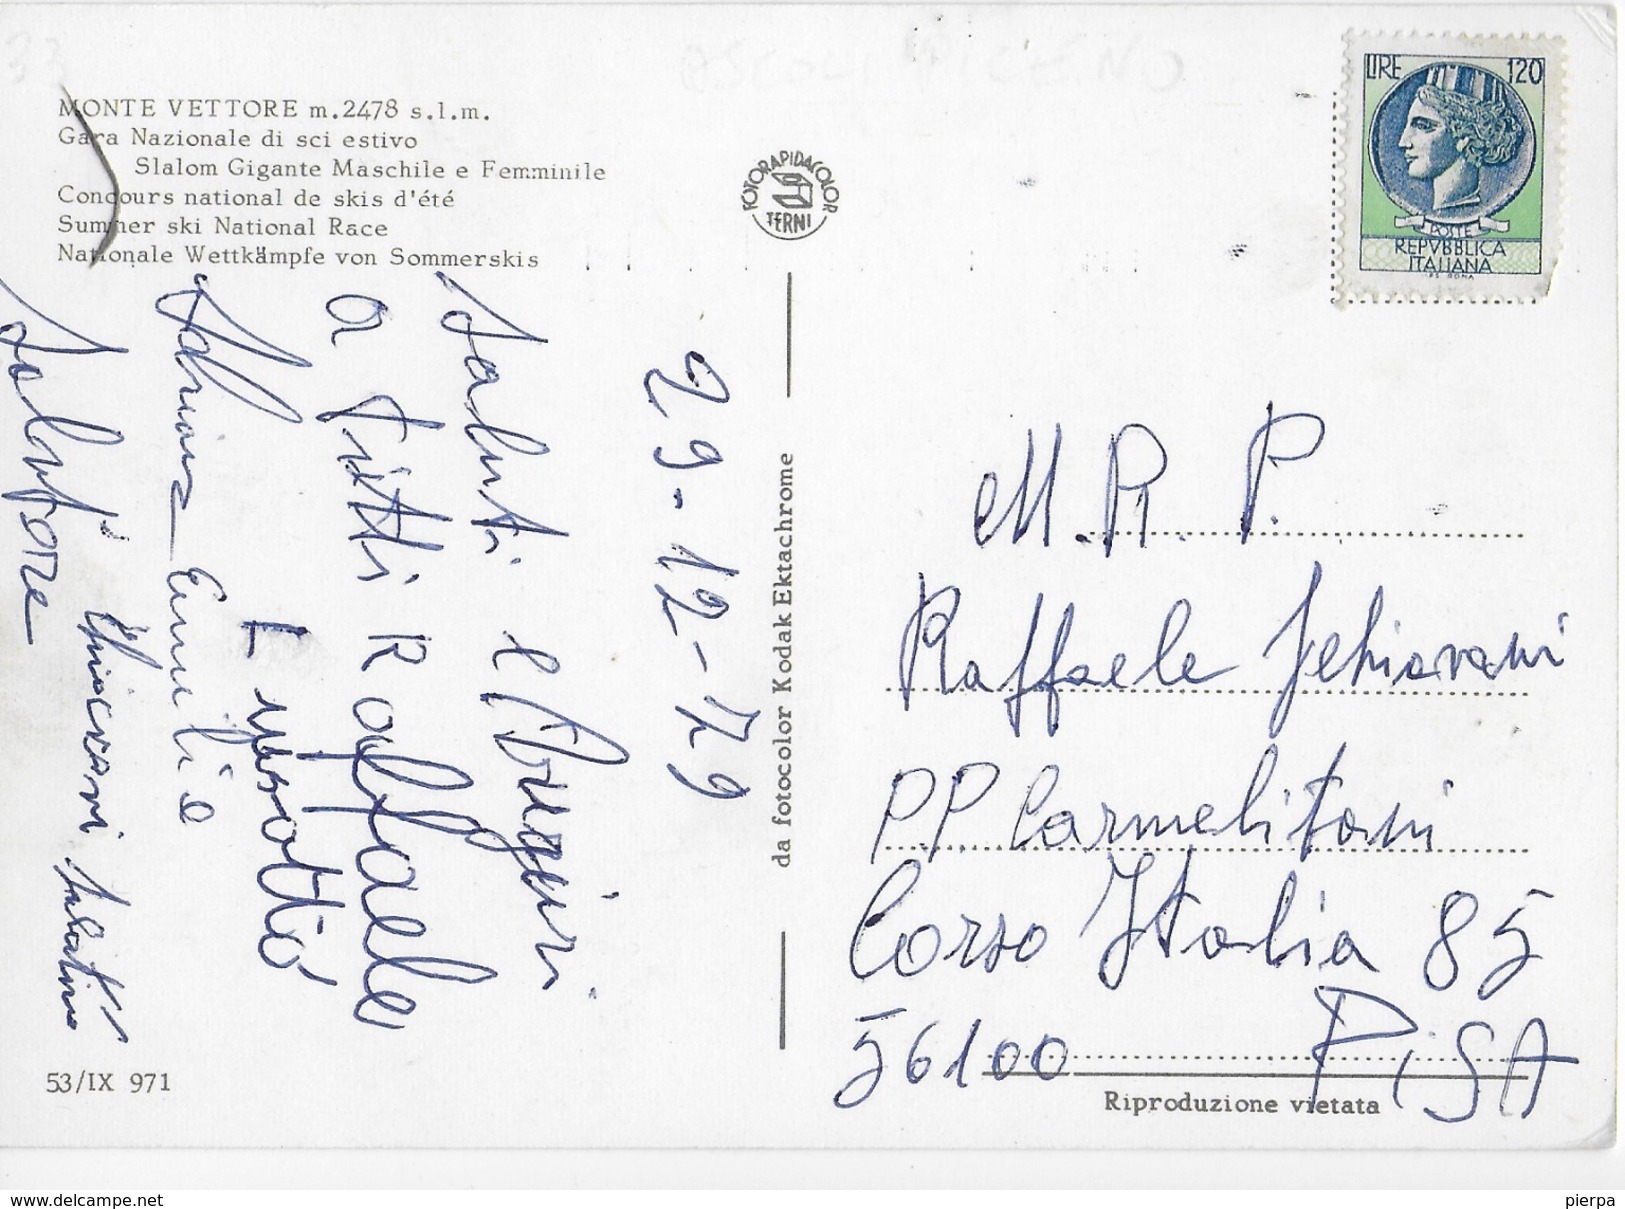 MONTE VETTORE m.2478 s.l.m.
Gara Nazionale di sci estivo
Slalom Gigante Maschile e Femminile
Concours national de skis d'été
Summer ski National Race
Nationale Wettkämpfe von Sommerskis
FOTORAPIDACOLOR
TERNI
LIRE 120
POSTE
REPVBBLICA
ITALIANA
29-12-79
Saluti e Auguri
a tutti Raffaele
Emilia
Salvatore
da fotocolor Kodak Ektachrome
M. R. P.
Raffaele
PP Carmelitani
Corso Italia 85
56100 PISA
53/IX 971
Riproduzione vietata
www.delcampe.net
pierpa